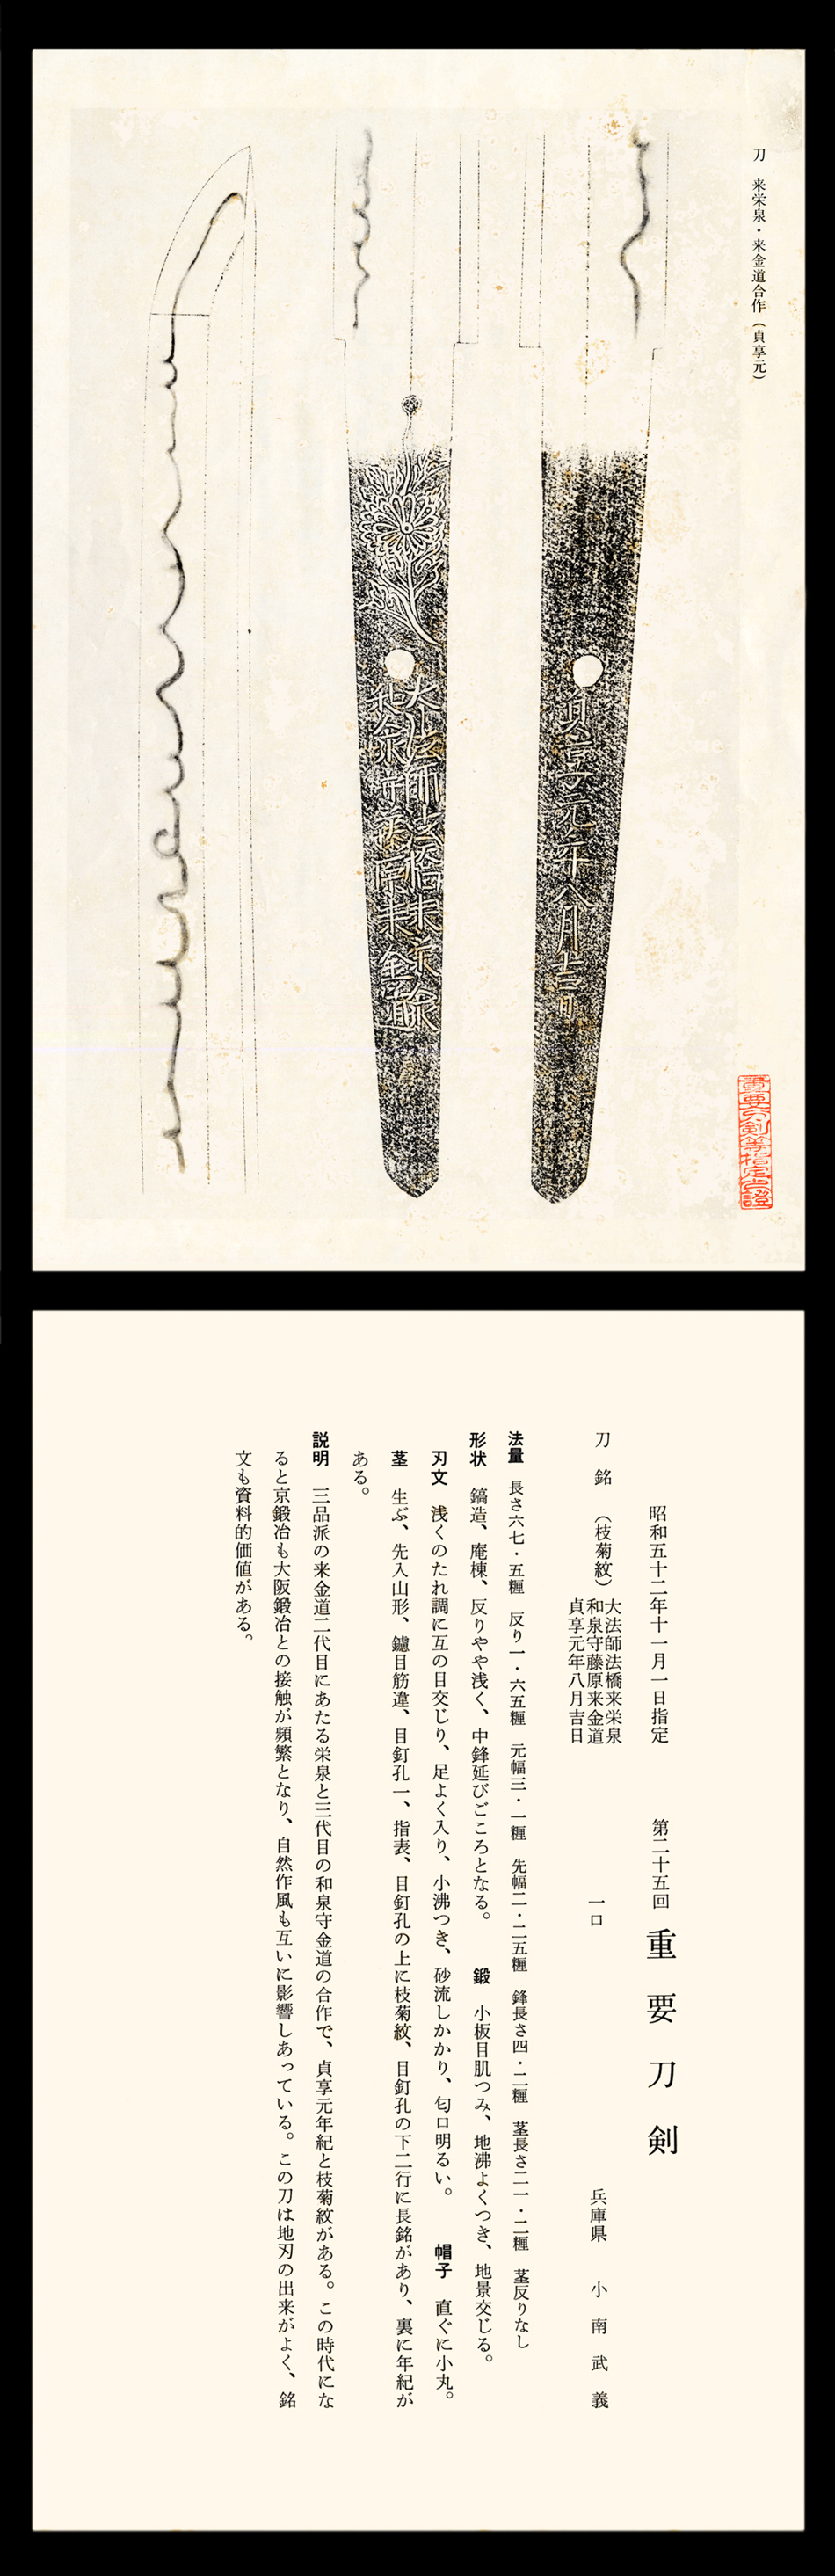 刀 来栄泉・来金道合作(貞享元)
貞享元年八月吉日
大法師法橋来栄泉
和泉守藤原来金道
重要刀剣等指定之證
昭和五十二年十一月一日指定 第二十五回 重要刀剣
刀 銘 (枝菊紋) 大法師法橋来栄泉
和泉守藤原来金道
貞享元年八月吉日
一口 兵庫県 小南武義
法量 長さ六七・五糎 反り一・六五糎 元幅三・一糎 先幅二・二五糎 鋒長さ四・二糎 茎長さ二一・二糎 茎反りなし
形状 鎬造、庵棟、反りやや浅く、中鋒延びごころとなる。 鍛 小板目肌つみ、地沸よくつき、地景交じる。
刃文 浅くのたれ調に互の目交じり、足よく入り、小沸つき、砂流しかかり、匂口明るい。 帽子 直ぐに小丸。
茎 生ぶ、先入山形、鑢目筋違、目釘孔一、指表、目釘孔の上に枝菊紋、目釘孔の下二行に長銘があり、裏に年紀が
ある。
説明 三品派の来金道二代目にあたる栄泉と三代目の和泉守金道の合作で、貞享元年紀と枝菊紋がある。この時代にな
ると京鍛冶も大阪鍛冶との接触が頻繁となり、自然作風も互いに影響しあっている。この刀は地刃の出来がよく、銘
文も資料的価値がある。